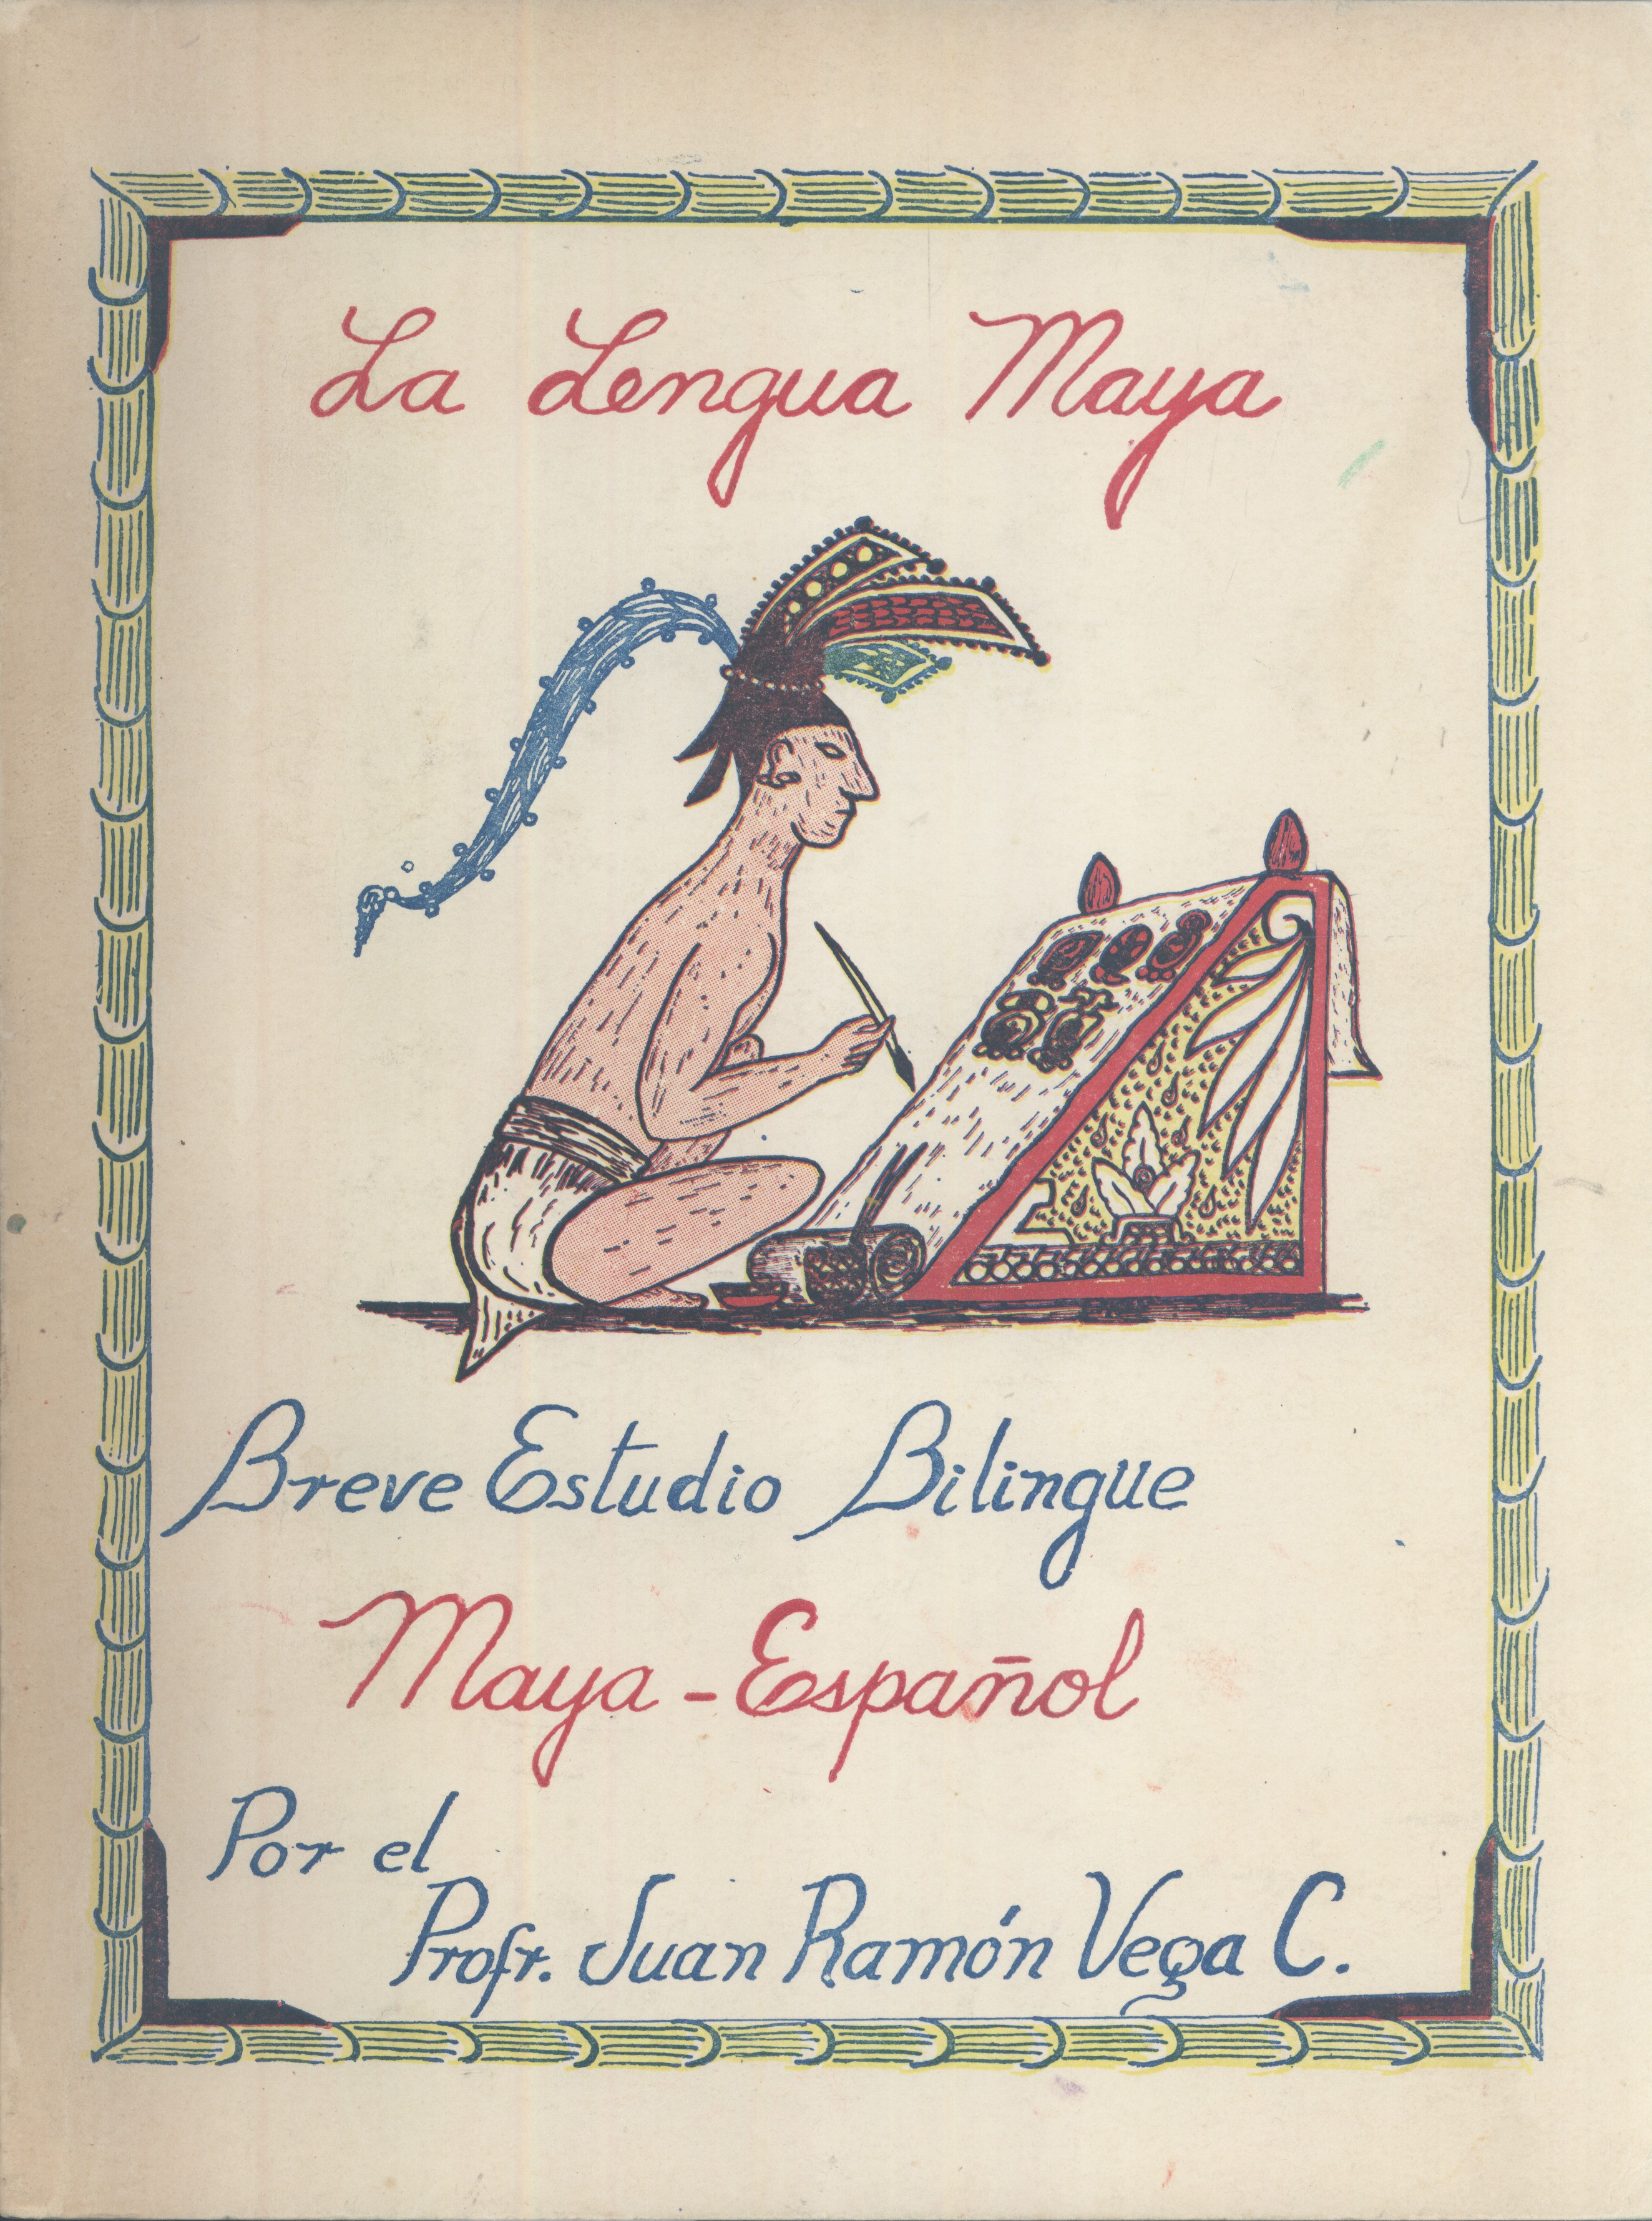 La Lengua Maya
Breve Estudio Bilingue
Maya - Español
Por el
Profr. Juan Ramón Vega C.